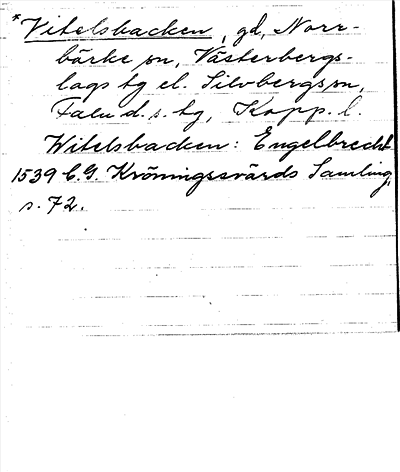 *Vitelsbacken, gd, Norr-
bärke sn, Västerbergs-
lags tg el. Silvbergs sn,
Falu d. s. tg, Kopp. l.
Witelsbacken: Engelbrecht
1539 C.G. Kröningssvärds Samling,
s. 72.